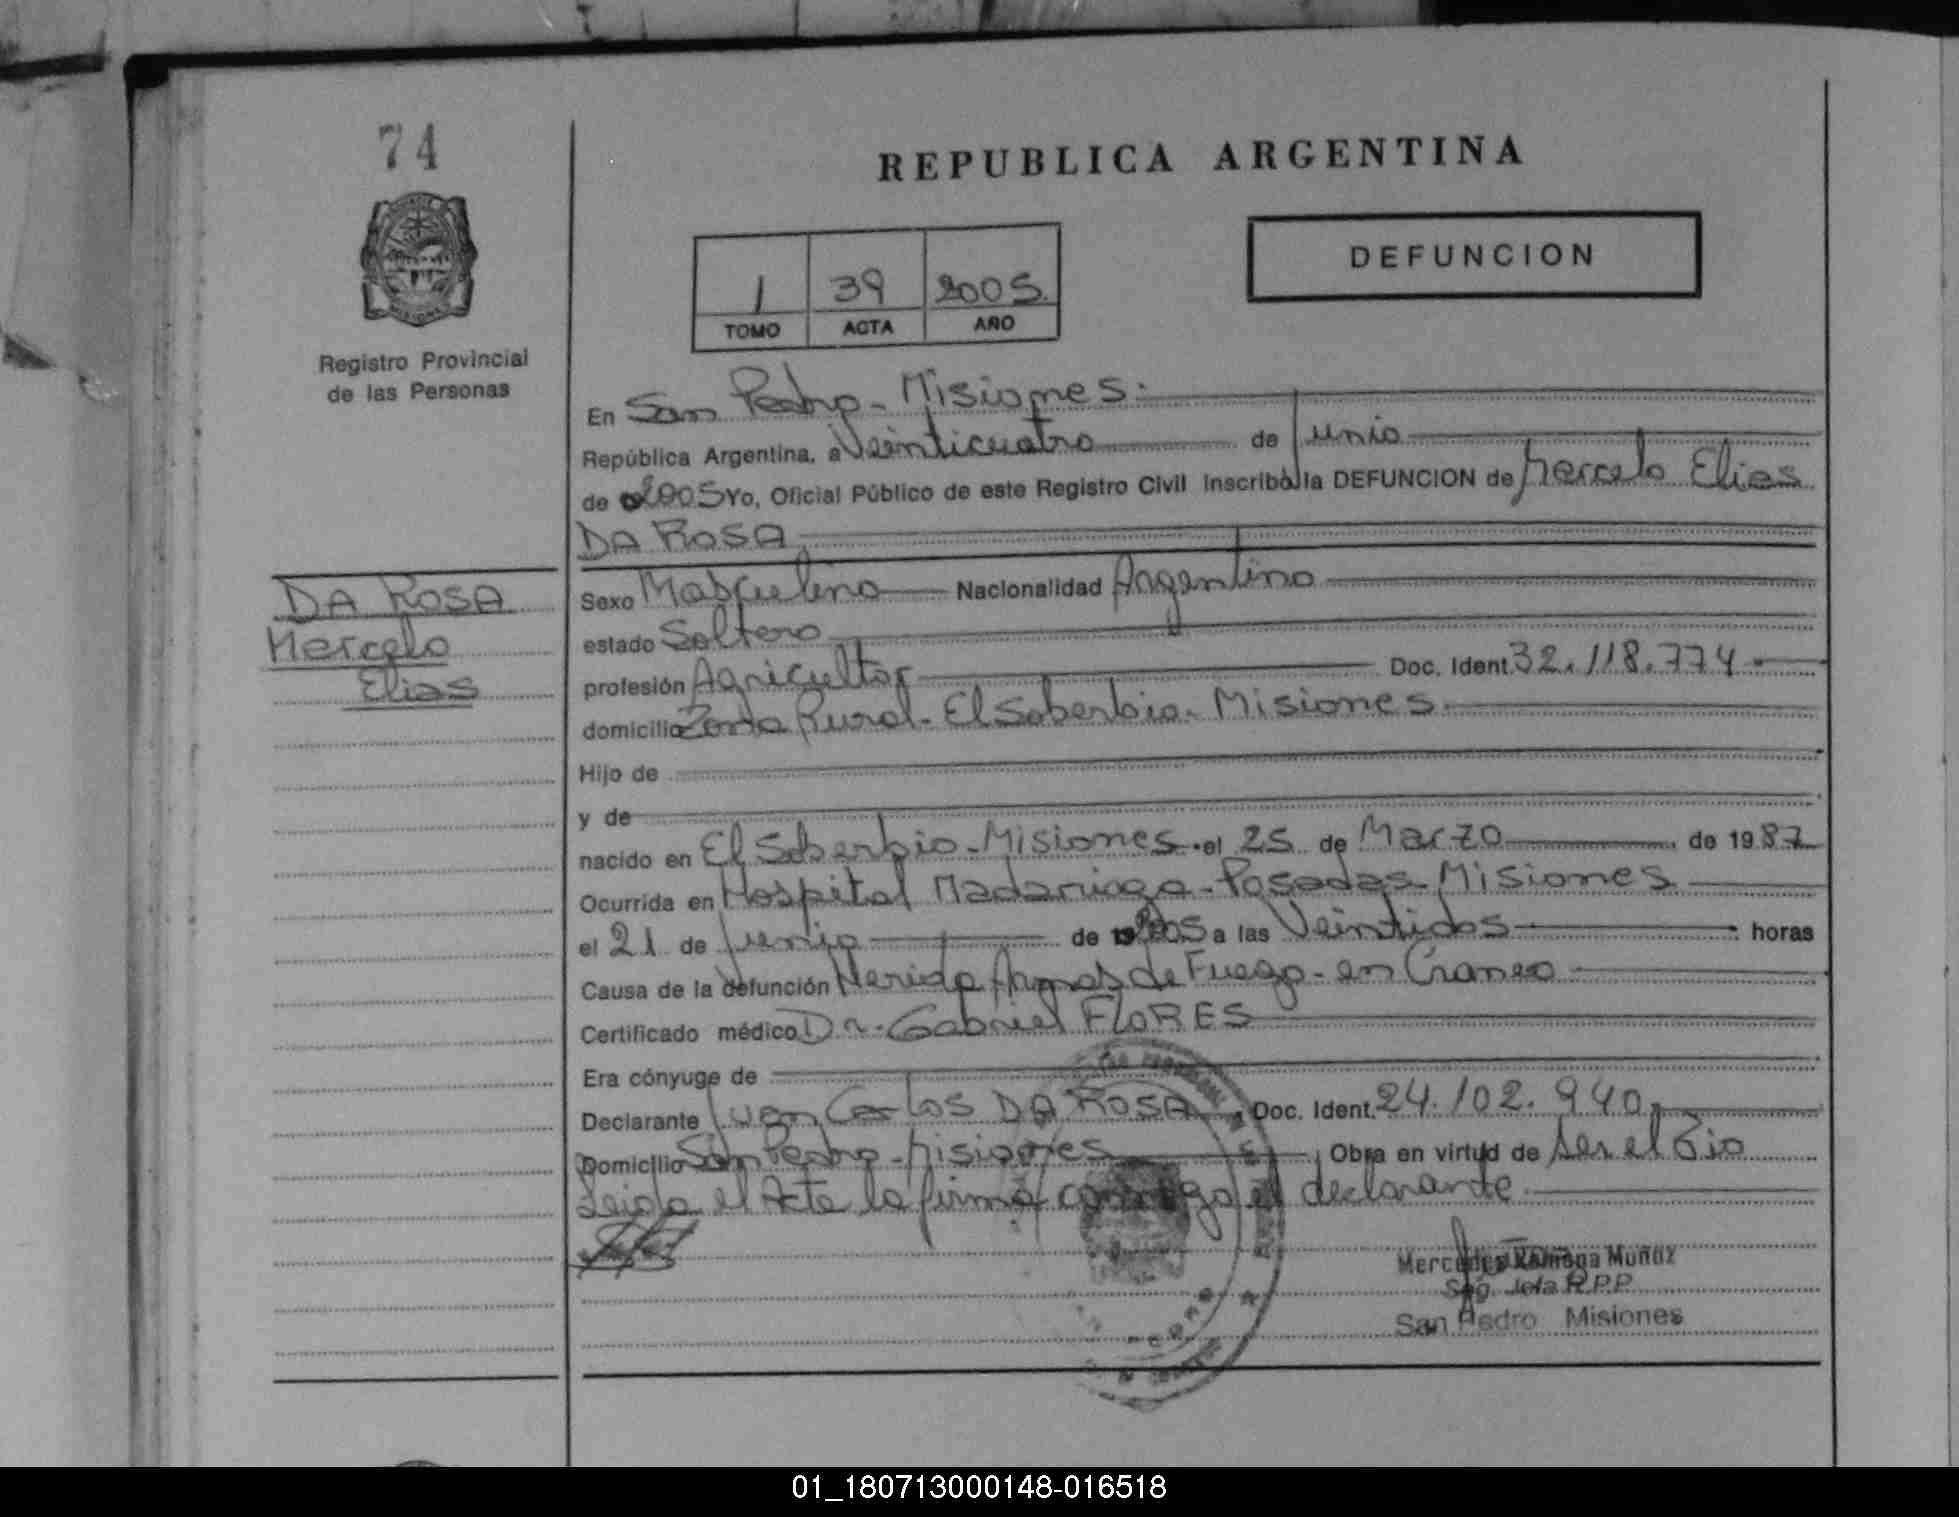 74
REPUBLICA ARGENTINA
DEFUNCION
1 39 2005.
TOMO ACTA AÑO
Registro Provincial
de las Personas
En San Pedro - Misiones.
República Argentina, a Veinticuatro de Junio
de 2005 Yo, Oficial Público de este Registro Civil inscribo la DEFUNCION de Marcelo Elias
DA ROSA
DA ROSA
Marcelo
Elias
Sexo Masculino Nacionalidad Argentino
estado Soltero
profesión Agricultor Doc. Ident. 32.118.774
domicilio Zona Rural - El Soberbio - Misiones
Hijo de
y de
nacido en El Soberbio - Misiones el 25 de Marzo de 1987
Ocurrida en Hospital Madariaga - Posadas - Misiones
el 21 de Junio de 2005 a las Veintidos horas
Causa de la defunción Herida Armas de Fuego - en Craneo
Certificado médico Dr. Gabriel FLORES
Era cónyuge de
Declarante Juan Carlos DA ROSA Doc. Ident. 24.102.940
Domicilio San Pedro - Misiones Obra en virtud de ser el Tio
Leida el Acta la firma conmigo el declarante
Mercedes Ramona Muñoz
R.P.P.
San Pedro Misiones
01_180713000148-016518